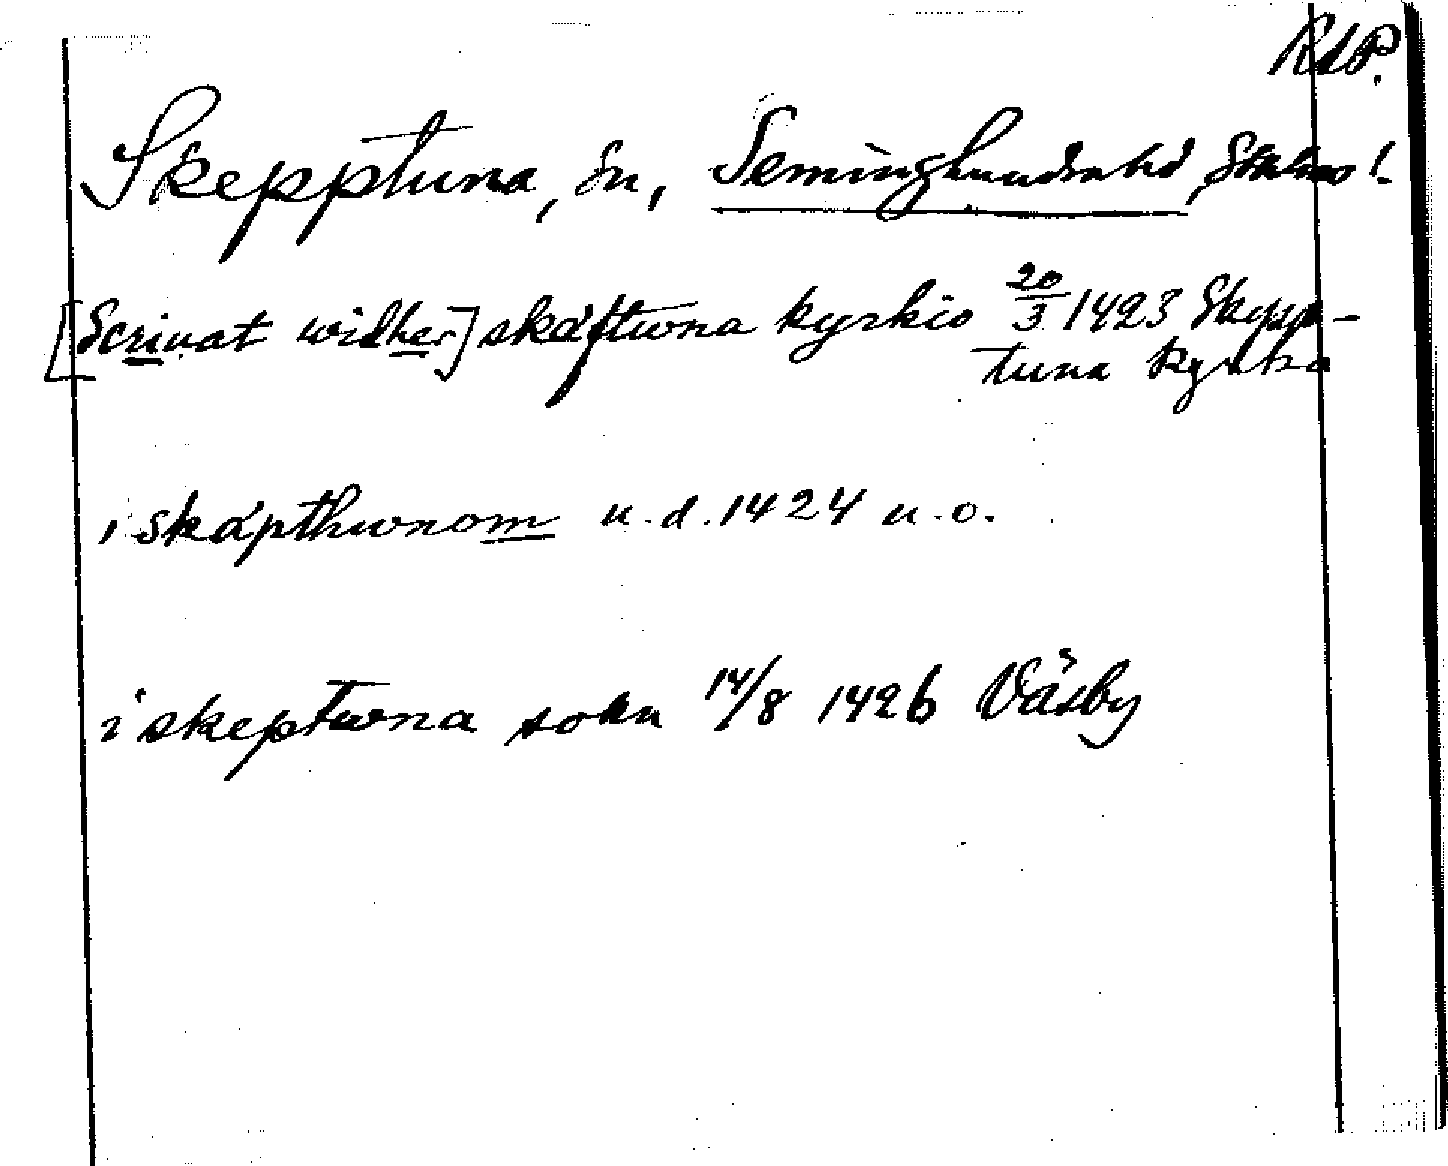 RAP.
Skepptuna, sn, Seminghundra hd, Sthlms l.
[Scriuat widher] skäftwna kyrkio 20/3 1423 Skepp-
tuna kyrka
i skäpthwnom u.d. 1424 u.o.
i skeptwna sokn 14/8 1426 Väsby